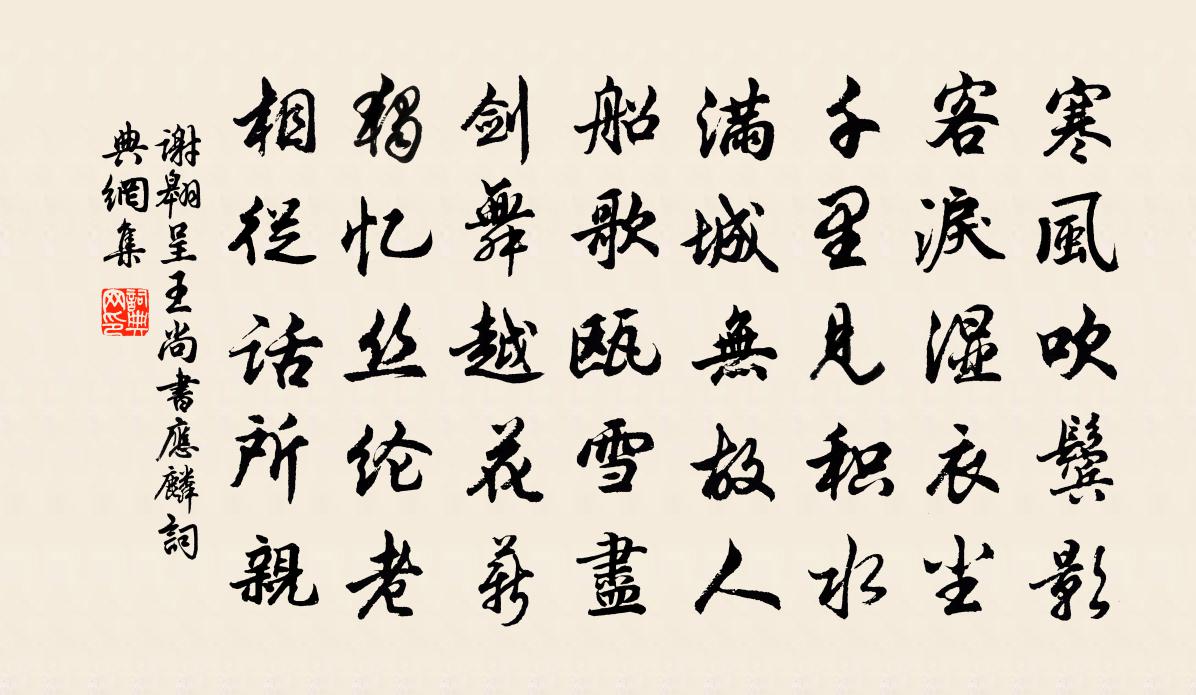 寒風吹鬢影
客淚湿衣尘
千里見积水
滿城無故人
船歌瓯雪盡
剑舞越花新
獨忆丝纶老
相從話所親
謝翱呈王尚書應麟詞
典網集
詞典
网印